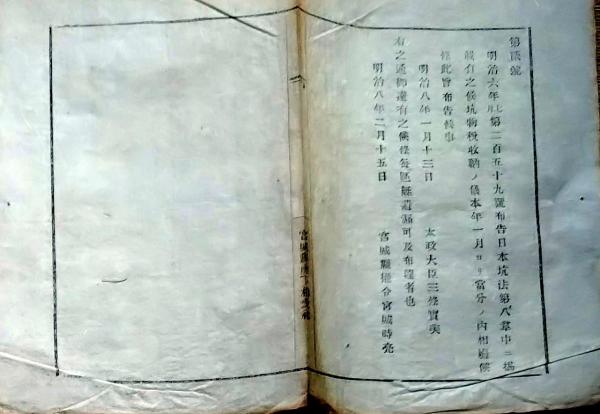 第四號
明治六年七月第二百五十九號布告日本坑法第八章中ニ揭
載有之候坑物稅收納ノ儀本年一月ヨリ當分ノ內相廢候
條此旨布告候事
明治八年一月十三日
太政大臣三條實美
右之通御達有之候條每區無遺漏可及布達者也
明治八年二月十五日
宮城縣權令宮城時亮
宮城縣